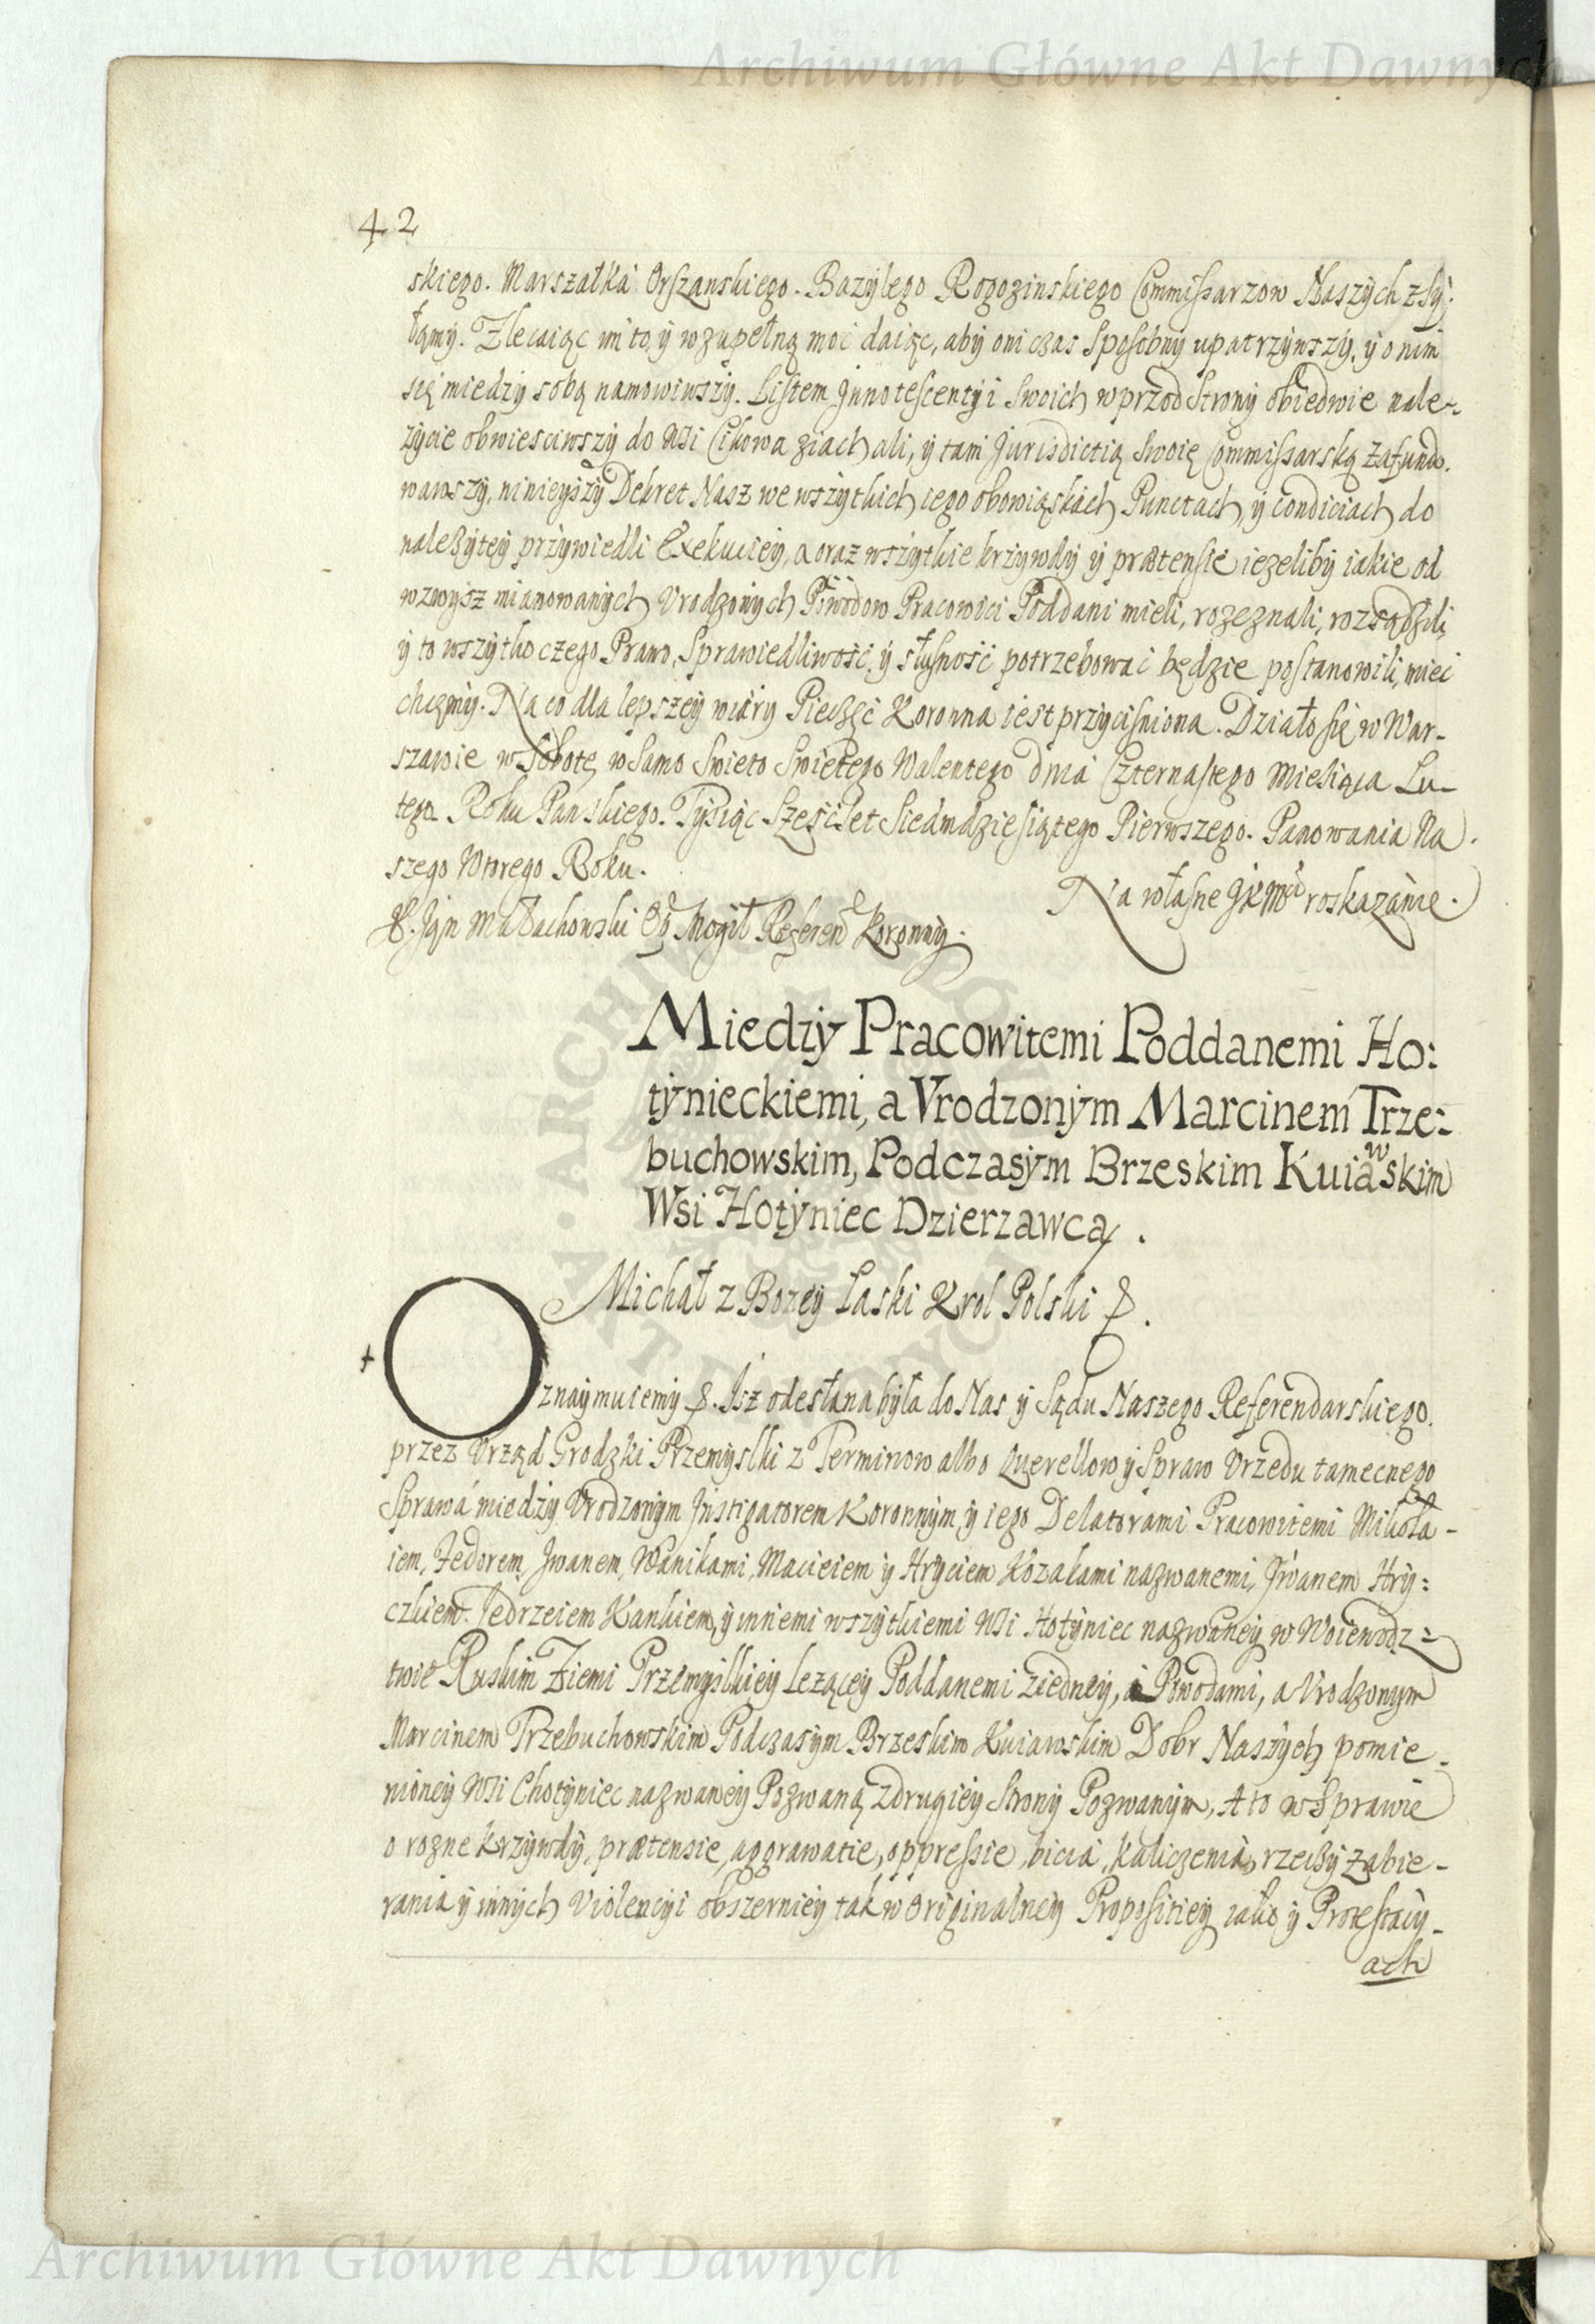 Archiwum Główne Akt Dawnych
42
skiego. Marszałka Orszanskiego. Bazylego Rogozinskiego Commissarzow Naszych zsy:
łamy. Zlecaiąc im to, y w zupełną moc daiąc, aby oni czas sposobny upatrzywszy, y o nim
się miedzy sobą namowiwszy. Listem Jnnotescentyi Swoich wprzod Strony obiedwie nale-
zycie obwiesciwszy do Wsi Cikowa ziachali, y tam Jurisdictią Swoię Commissarską zafundo.
wawszy, ninieyszy Dekret Nasz we wszytkich iego obowiąskach Punctach, y condiciach do
nalezytey przywiedli Exekuciey, a oraz wszytkie krzywdy y prætensie iezeliby iakie od
wzwysz mianowanych Vrodzonych Powodow Pracowici Poddani mieli, rozeznali, rozsądzili
y to wszytko czego Prawo, Sprawiedliwość, y słusność potrzebować będzie postanowili, mieć
chcemy. Na co dla lepszey wiary Pieczęć Koronna iest przycisniona. Działo się w War-
szawie w Sobotę w Samo Swieto Swietego Walentego dnia Czternastego Miesiąca Lu-
tego. Roku Panskiego. Tysiąc Sześćset Siedmdziesiątego Pierwszego. Panowania Na.
szego Wtorego Roku.
Na własne JKMci roskazanie.
X. Jan Małachowski Op Mogil Referen Koronny.
Miedzy Pracowitemi Poddanemi Ho:
tynieckiemi, a Vrodzonym Marcinem Trze:
buchowskim, Podczasym Brzeskim Kuiawskim
Wsi Hotyniec Dzierzawcą.
Michał z Bozey Łaski Krol Polski &.
Oznaymuiemy &. Jsz odesłana była do Nas y Sądu Naszego Referendarskiego.
przez Vrząd Grodzki Przemyslki z Terminow albo Querellow y Spraw Vrzedu tamecnego
Sprawa miedzy Vrodzonym Jnstigatorem Koronnym, y iego Delatorami Pracowitemi Mikoła-
iem, Fedorem, Jwanem, Wanikami, Macieiem y Hryciem Kozakami nazwanemi, Jwanem Hry:
czkiem. Jedrzeiem Kankiem, y innemi wszytkiemi Wsi Hotyniec nazwaney w Woiewodz:
twie Ruskim Ziemi Przemyslkiey Lezącey Poddanemi ziedney, Powodami, a Vrodzonym
Marcinem Trzebuchowskim Podczasym Brzeskim Kuiawskim Dobr Naszych pomie-
nioney Wsi Chotyniec nazwaney Pozwaną zdrugiey Strony Pozwanym, A to w Sprawie
o rozne krzywdy, prætensie, aggrawatie, oppressie, bicia, kaliczenia, rzeczy zabie-
rania y innych violencyi obszerniey tak w originalney Propositiey iako y Protestacy-
ach
Archiwum Główne Akt Dawnych